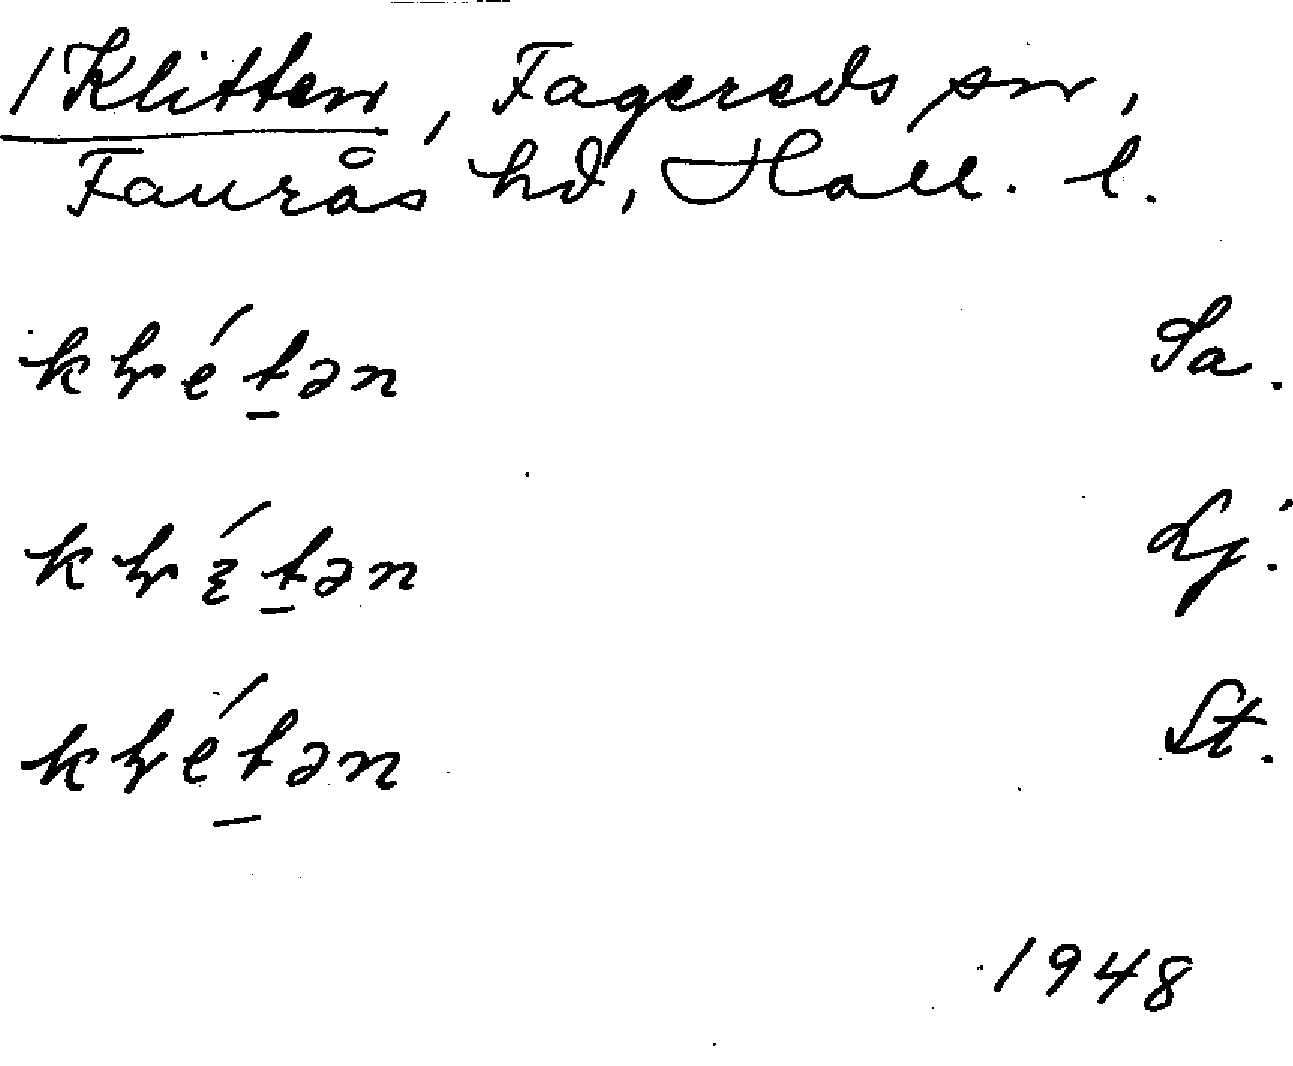 1 Klitten, Fagereds sn,
Faurås hd, Hall. l.
klétən Sa.
klɛ́tən Lj.
klétən St.
1948